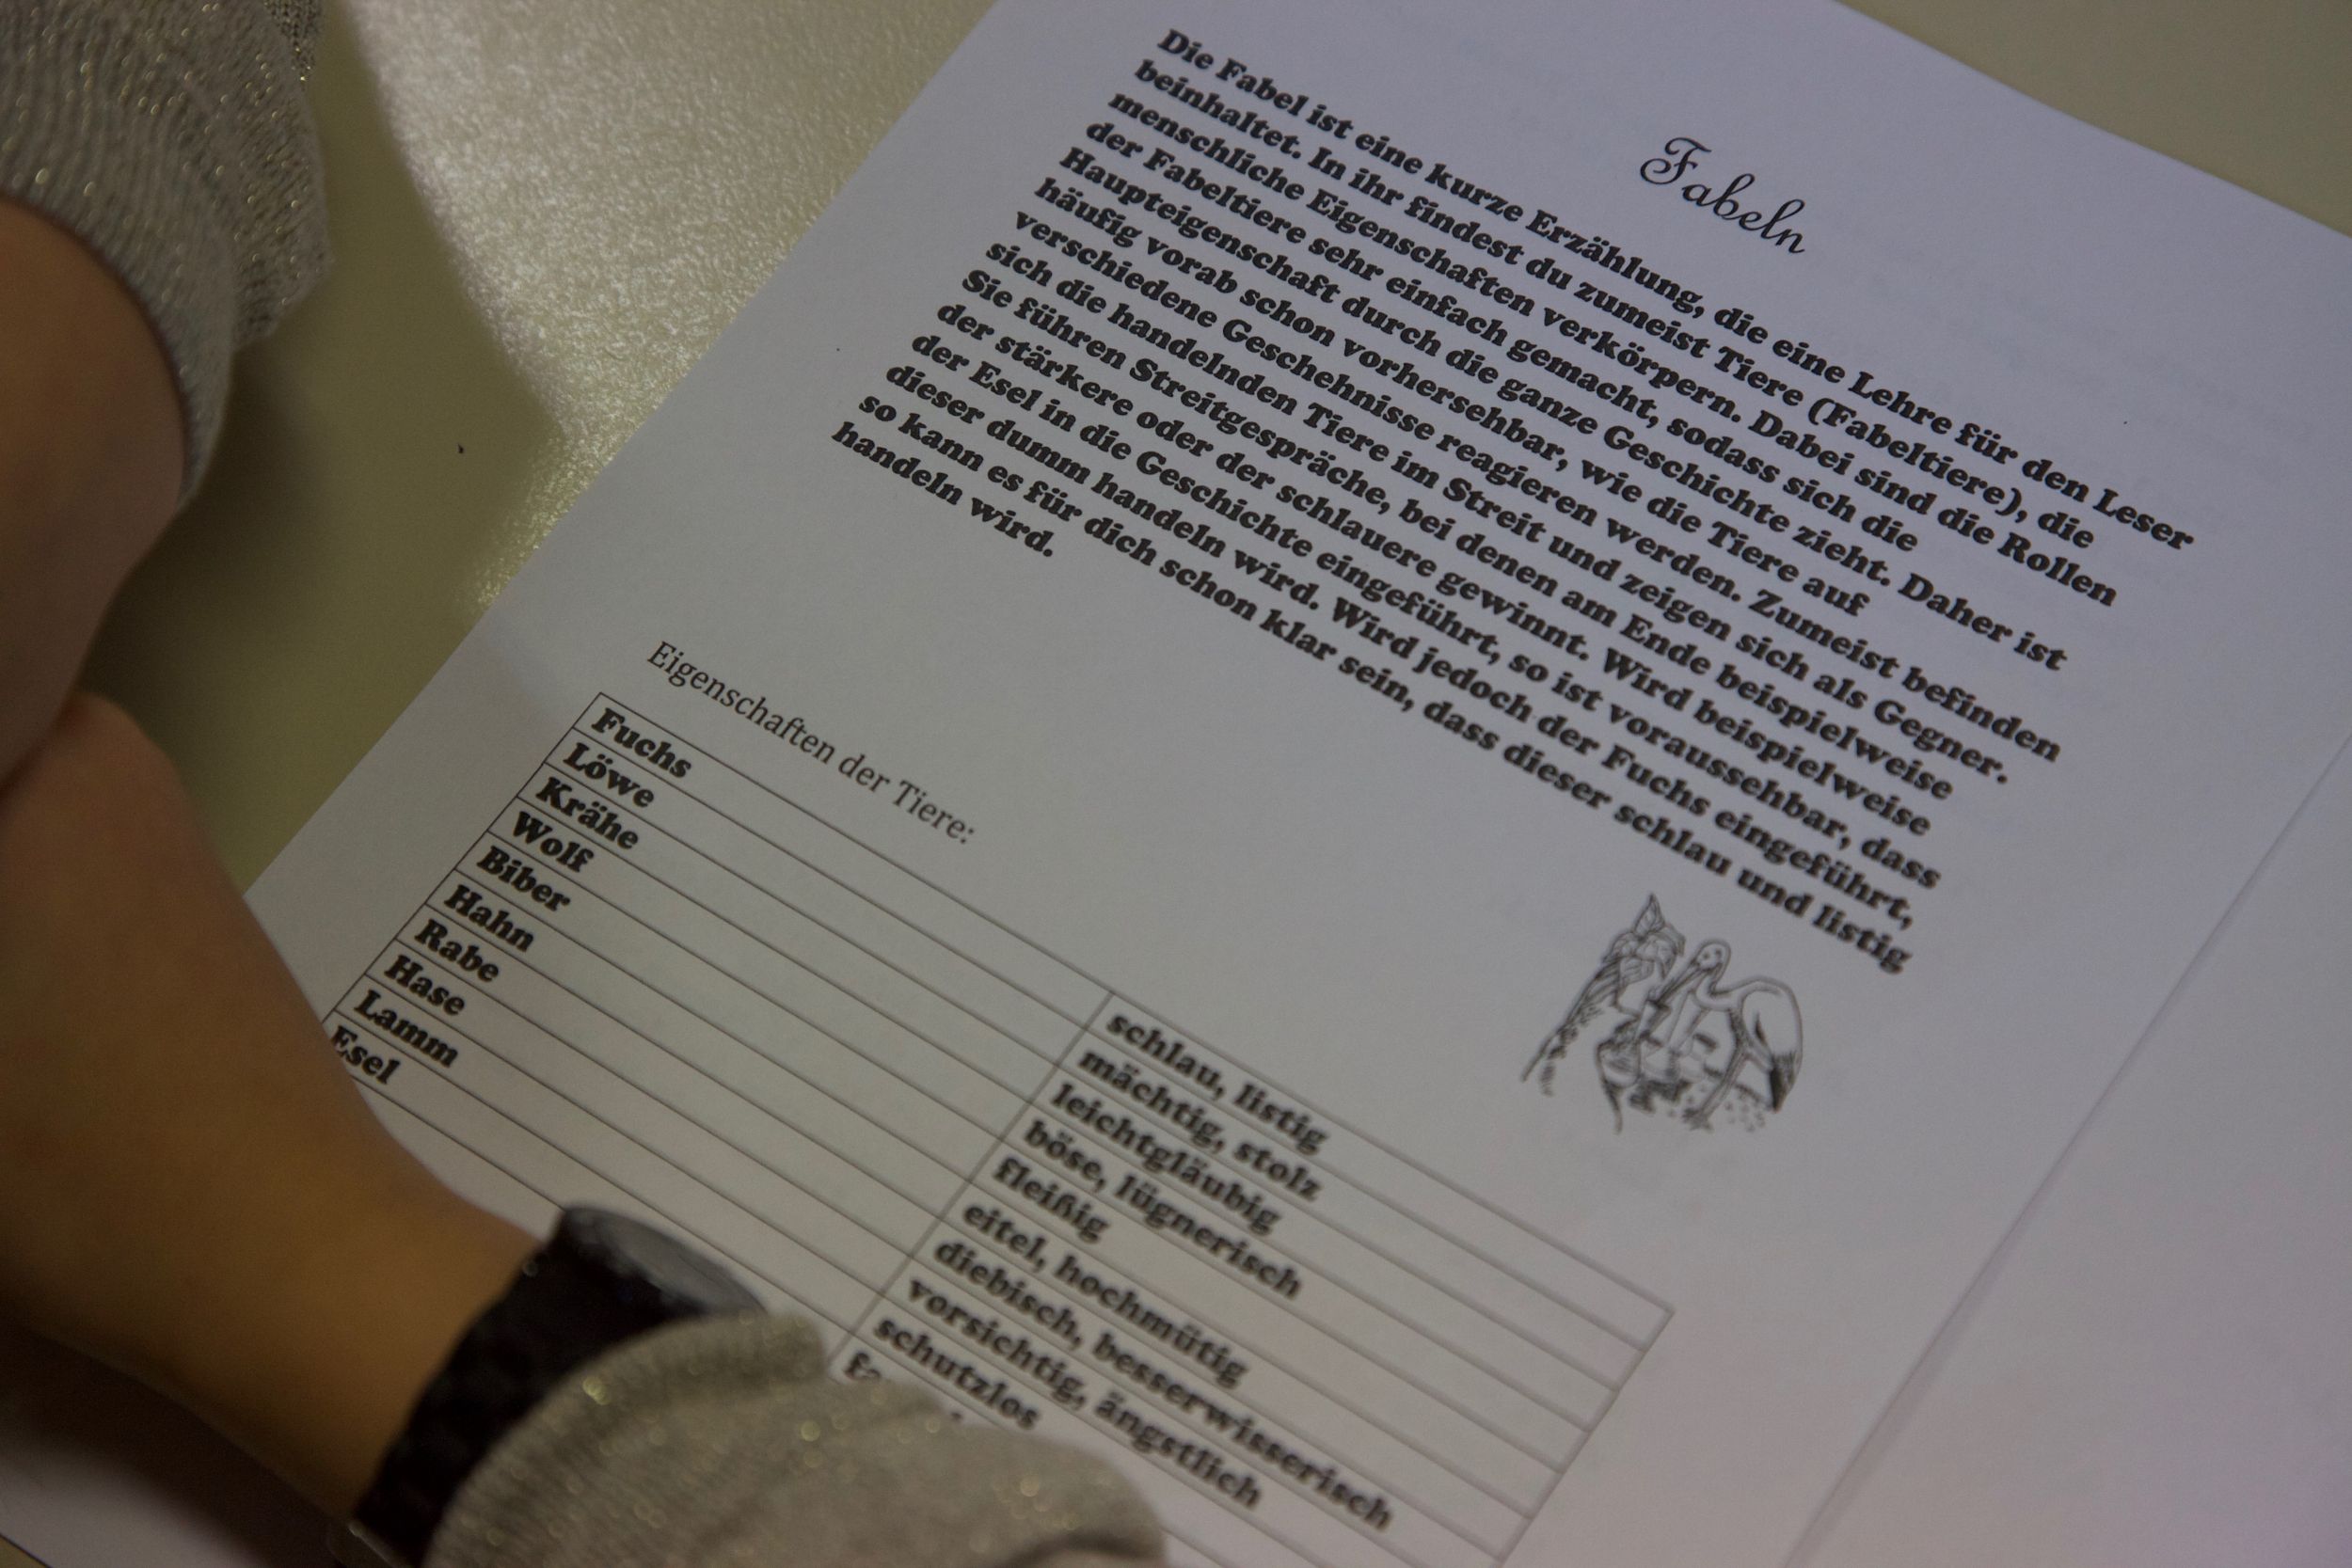 Fabeln
Die Fabel ist eine kurze Erzählung, die eine Lehre für den Leser
beinhaltet. In ihr findest du zumeist Tiere (Fabeltiere), die
menschliche Eigenschaften verkörpern. Dabei sind die Rollen
der Fabeltiere sehr einfach gemacht, sodass sich die
Haupteigenschaft durch die ganze Geschichte zieht. Daher ist
häufig vorab schon vorhersehbar, wie die Tiere auf
verschiedene Geschehnisse reagieren werden. Zumeist befinden
sich die handelnden Tiere im Streit und zeigen sich als Gegner.
Sie führen Streitgespräche, bei denen am Ende beispielweise
der stärkere oder der schlauere gewinnt. Wird beispielweise
der Esel in die Geschichte eingeführt, so ist voraussehbar, dass
dieser dumm handeln wird. Wird jedoch der Fuchs eingeführt,
so kann es für dich schon klar sein, dass dieser schlau und listig
handeln wird.
Eigenschaften der Tiere:
Fuchs schlau, listig
Löwe mächtig, stolz
Krähe leichtgläubig
Wolf böse, lügnerisch
Biber fleißig
Hahn eitel, hochmütig
Rabe diebisch, besserwisserisch
Hase vorsichtig, ängstlich
Lamm schutzlos
Esel